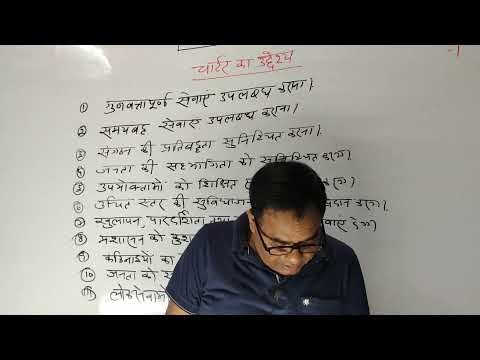 चार्टर का उद्देश्य
① गुणवत्तापूर्ण सेवाएं उपलब्ध करना।
② समयबद्ध सेवाएं उपलब्ध कराना।
③ संगठन की प्रतिबद्धता सुनिश्चित करना।
④ जनता की सहभागिता को सुनिश्चित करना।
⑤ उपभोक्ताओं को शिक्षित
⑥ उचित स्तर की सुविधा करना
⑦ खुलापन, पारदर्शिता तथा देना
⑧ प्रशासन को
⑨ कठिनाइयों का
⑩ जनता को
⑪